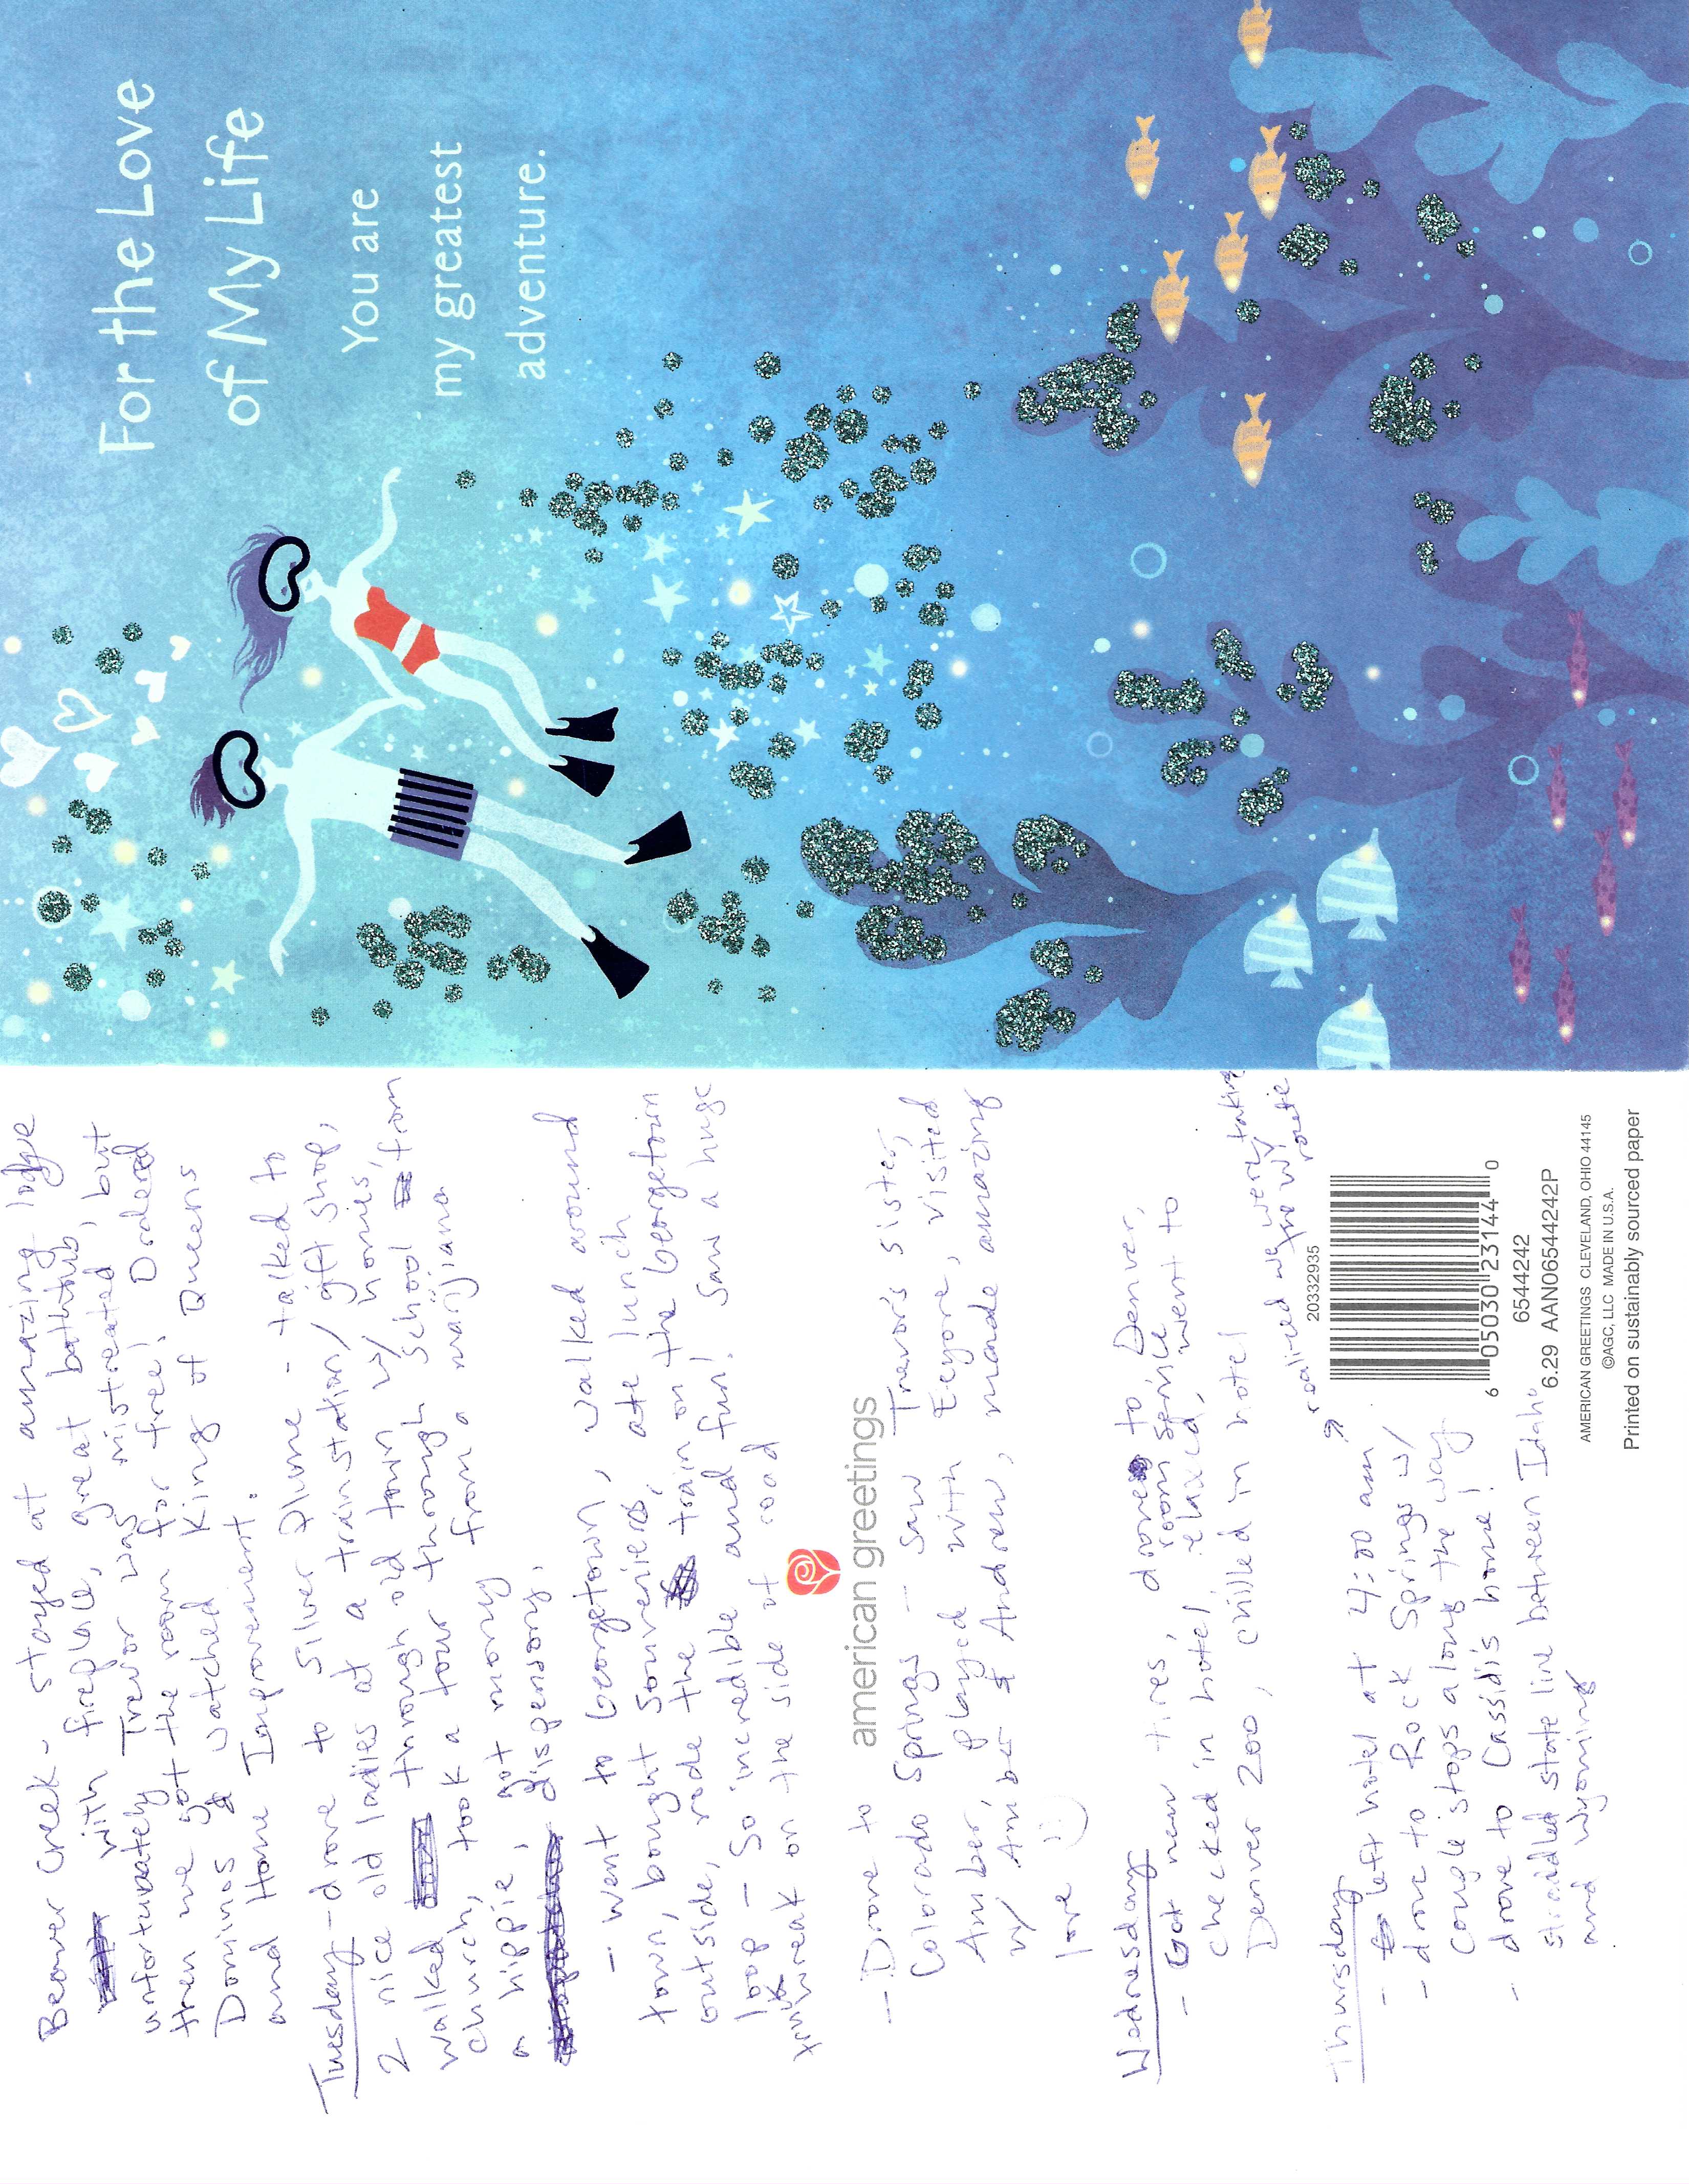 For the Love
of My Life
You are
my greatest
adventure.
Beaver Creek - stayed at amazing lodge
with fireplace, great bathtub, but
unfortunately Trevor was mistreated,
then we got the room for free! Ordered
Dominos & watched King of Queens
and Home Improvement.
Tuesday - drove to Silver Plume - talked to
2 nice old ladies at a trainstation/gift shop,
walked through old town w/ homes,
church, took a tour through school from
a hippie, got money from a marijiana
dispensary.
- went to Georgetown, walked around
town, bought souveniers, ate lunch
outside, rode the train on the Georgetown
loop - so incredible and fun! Saw a huge
wreak on the side of road
american greetings
- Drove to
Colorado Springs - saw Trevor's sister,
Amber, played with Eeyore, visited
w/ Amber & Andrew, made amazing
love
Wednesday
- Got new tires, drove to Denver,
checked in hotel, room service,
relaxed, went to
Denver zoo, chilled in hotel
Thursday
- left hotel at 4:00 am,
realized we were taking
the wy route
- drove to Rock Springs w/
couple stops along the way
- drove to Cassidi's home!
straddled state line between Idaho
and Wyoming
20332935
6 05030 23144 0
6544242
6.29 AAN06544242P
AMERICAN GREETINGS CLEVELAND, OHIO 44145
©AGC, LLC MADE IN U.S.A.
Printed on sustainably sourced paper